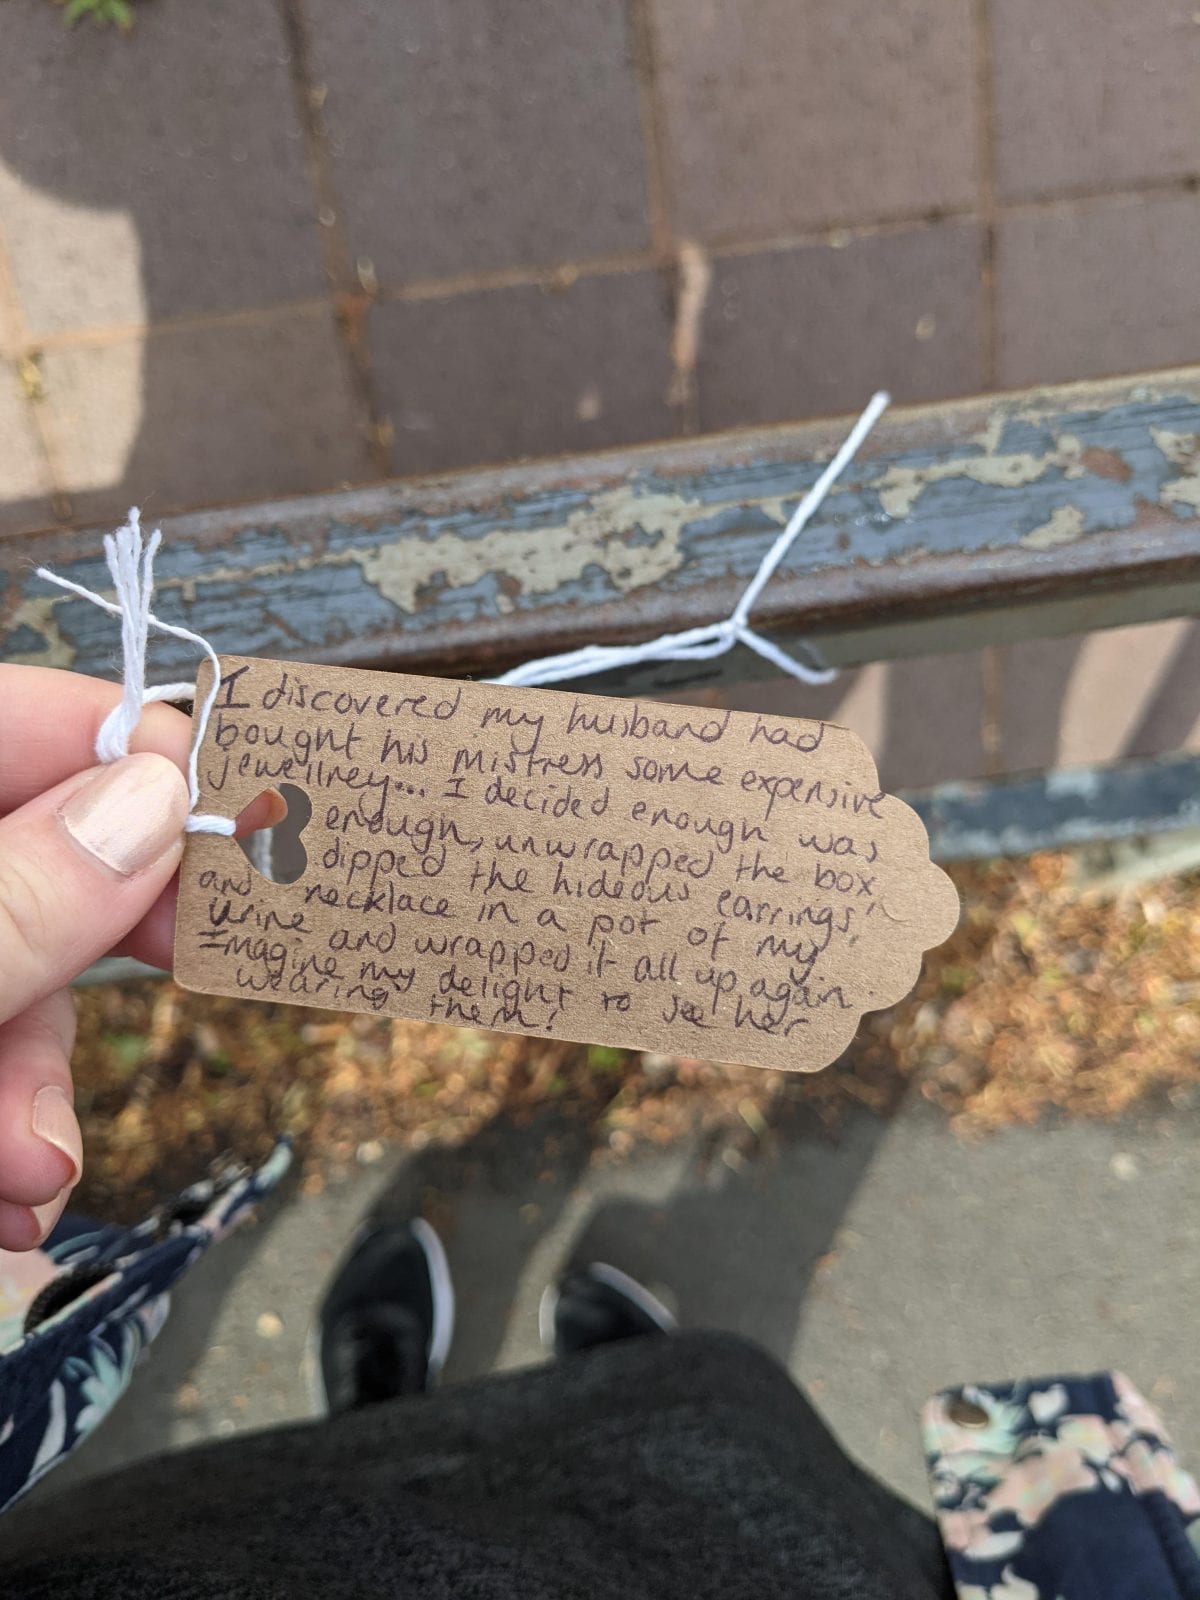 I discovered my husband had
bought his mistress some expensive
jewellrey... I decided enough was
enough, unwrapped the box,
dipped the hideous earrings,
and necklace in a pot of my
urine and wrapped it all up again.
Imagine my delight to see her
wearing them!